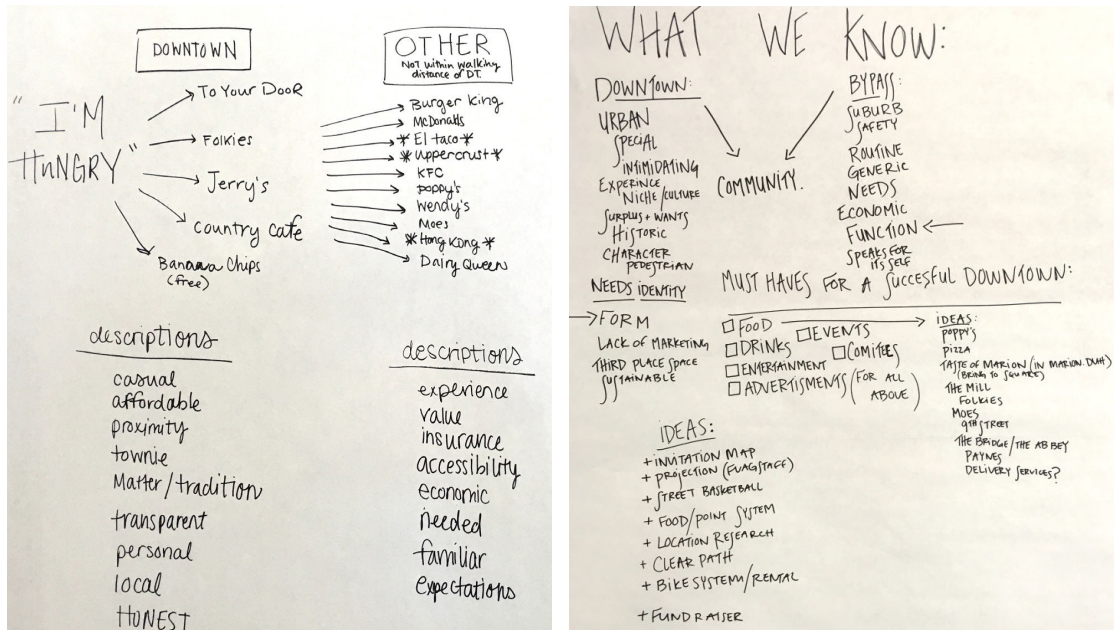 DOWNTOWN
"I'M HUNGRY"
To Your Door
Folkies
Jerry's
Country Cafe
Banana Chips
(free)
OTHER
Not within walking
distance of DT.
Burger King
McDonalds
* El taco *
* uppercrust *
KFC
poppy's
Wendy's
Moes
* Hong Kong *
Dairy Queen
descriptions
casual
affordable
proximity
townie
Matter/tradition
transparent
personal
local
HONEST
descriptions
experience
value
insurance
accessibility
economic
needed
familiar
expectations
WHAT WE KNOW:
DOWNTOWN:
URBAN
SPECIAL
INTIMIDATING
EXPERINCE
NICHE/CULTURE
SURPLUS + WANTS
HISTORIC
CHARACTER
PEDESTRIAN
NEEDS IDENTITY
FORM
LACK OF MARKETING
THIRD PLACE SPACE
SUSTAINABLE
COMMUNITY.
BYPASS:
SUBURB
SAFETY
ROUTINE
GENERIC
NEEDS
ECONOMIC
FUNCTION
SPEAKS FOR
ITS SELF
MUST HAVES FOR A SUCCESFUL DOWNTOWN:
FOOD
EVENTS
DRINKS
COMITEES
ENTERTAINMENT
ADVERTISMENTS (FOR ALL
ABOVE)
IDEAS:
POPPY'S
PIZZA
TASTE OF MARION (IN MARION. DUH)
(BRING TO SQUARE)
THE MILL
FOLKIES
MOES
9TH STREET
THE BRIDGE/THE ABBEY
PAYNES
DELIVERY SERVICES?
IDEAS:
+ INVITATION MAP
+ PROJECTION (FLAGSTAFF)
+ STREET BASKETBALL
+ FOOD/POINT SYSTEM
+ LOCATION RESEARCH
+ CLEAR PATH
+ BIKE SYSTEM/RENTAL
+ FUNDRAISER